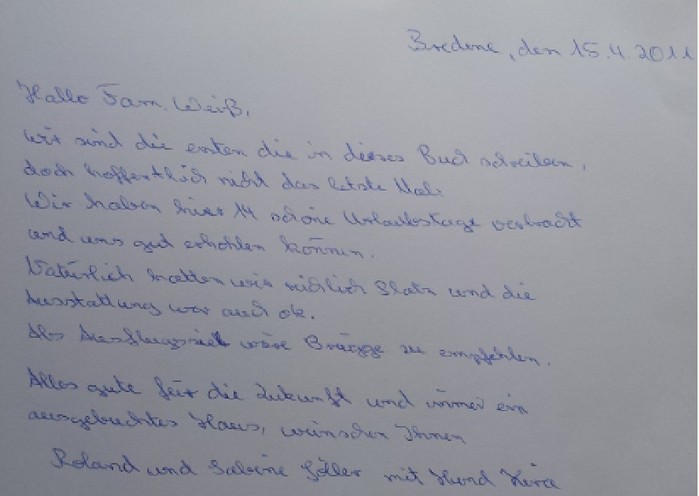 Bredene, den 15.4.2011
Hallo Fam. Weiß,
wir sind die ersten die in dieses Buch schreiben,
doch hoffentlich nicht das letzte Mal.
Wir haben hier 14 schöne Urlaubstage verbracht
und uns gut erhohlen können.
Natürlich hatten wir reichlich Platz und die
Ausstattung war auch ok.
Als Ausflugsziel wäre Brügge zu empfehlen.
Alles gute für die Zukunft und immer ein
ausgebuchtes Haus, wünschen Ihnen
Roland und Sabine mit Hund